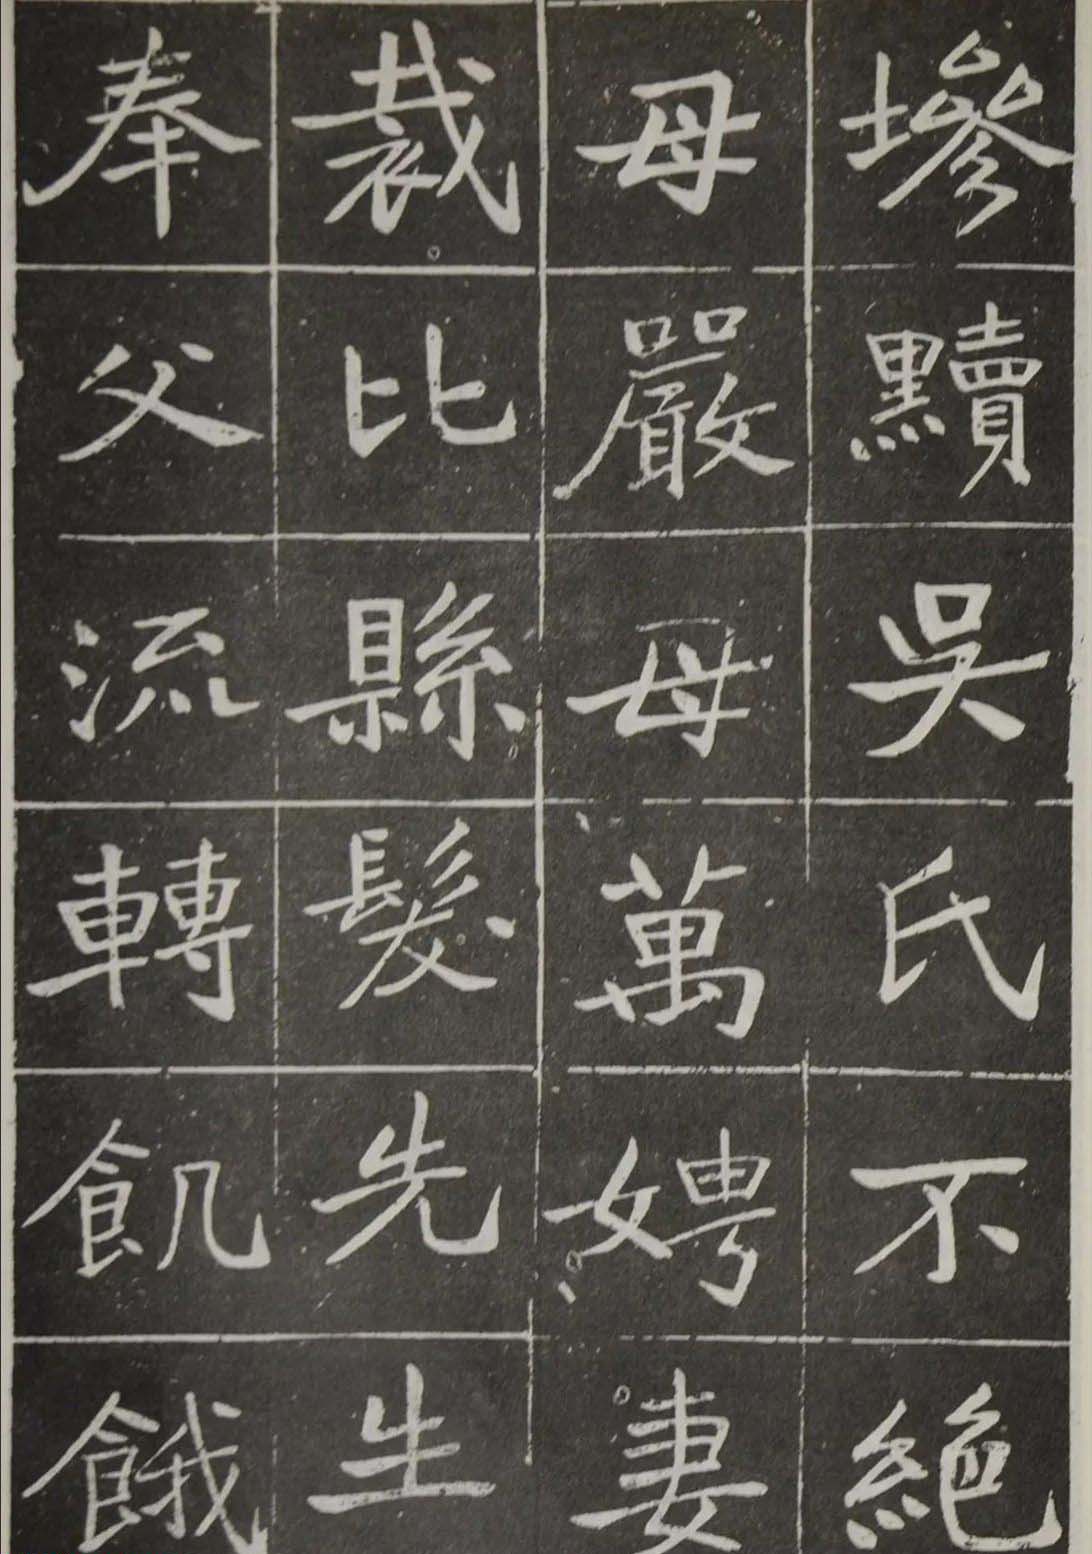 墋黷吳氏不絕
母嚴母萬娉妻
裁比縣髮先生
奉父流轉飢餓